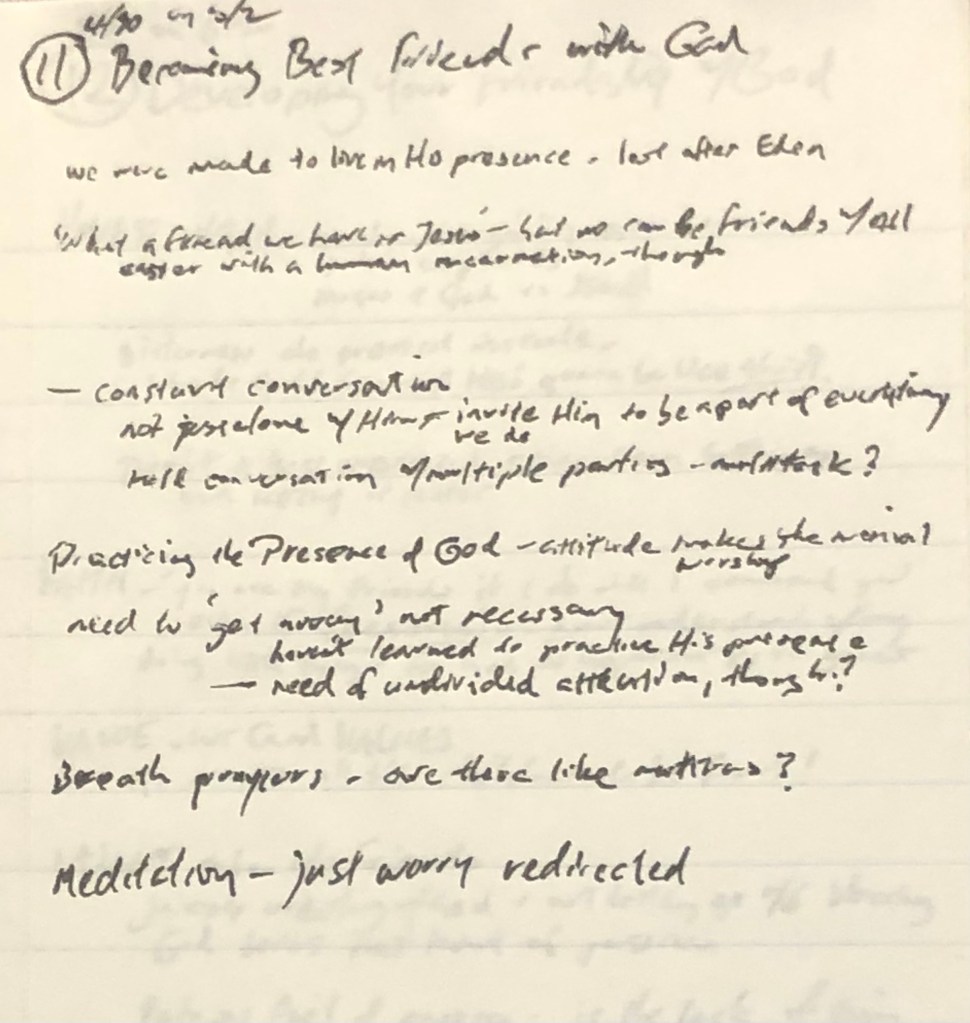 4/30 on 5/2
(11) Becoming Best Friends with God
we were made to live in His presence - lost after Eden
"What a friend we have in Jesus" - but we can be friends w/all
easier with a human incarnation, though
- constant conversation
not just alone w/Him - invite Him to be a part of everything
we do
hold conversation w/multiple parties - multitask?
Practicing the Presence of God - attitude makes the menial
worship
need to 'get away' not necessary
haven't learned to practice His presence
- need of undivided attention, though?
Breath prayers - are these like mantras?
Meditation - just worry redirected